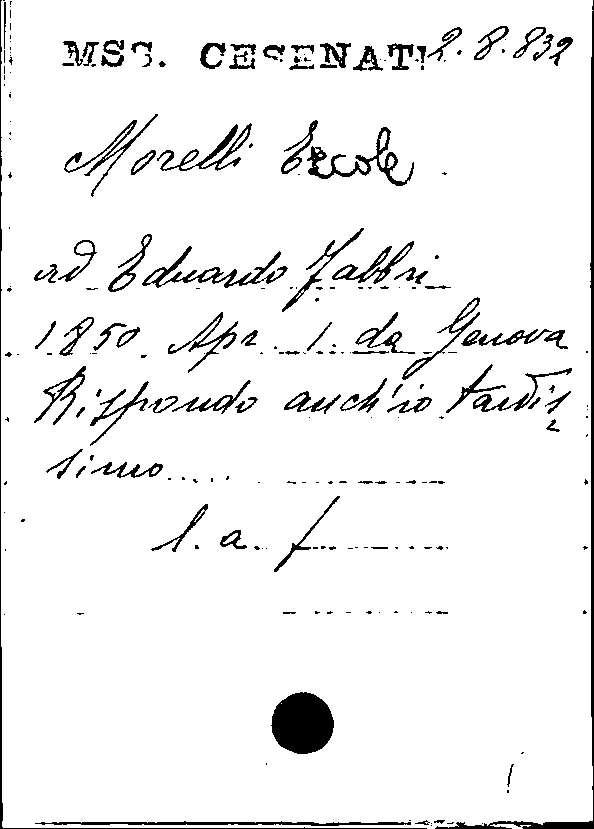 MSS. CESENATI 2.8.832
Morelli Ercole
ad Eduardo Fabbri
1850 Apr. 1. da Genova
Rispondo anch'io tardis
simo.....
l. a. f